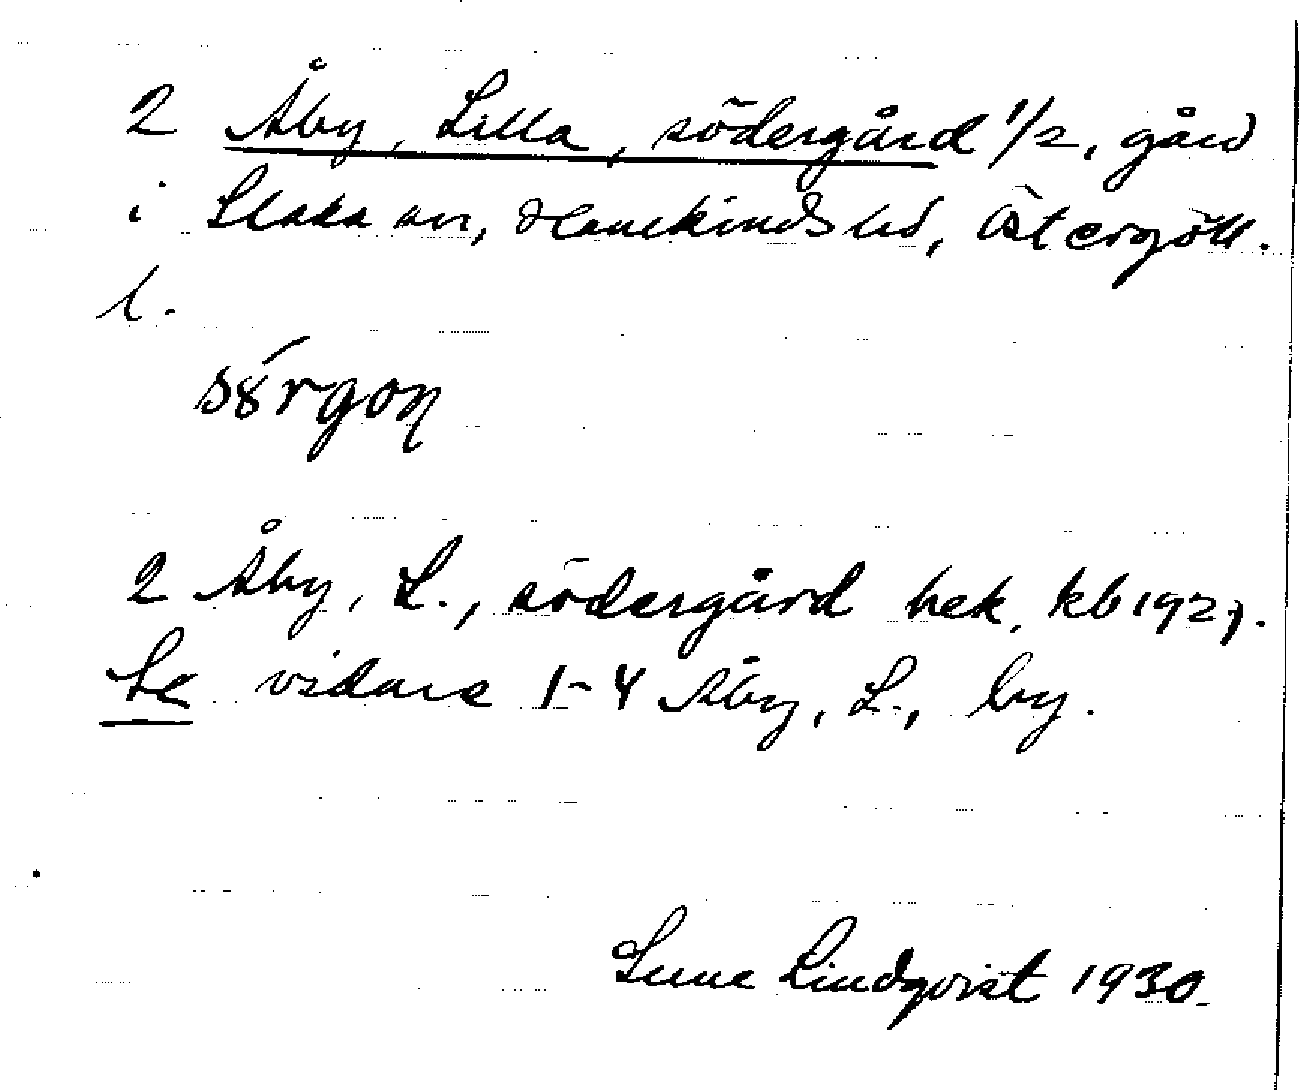 2 Åby, Lilla, södergård 1/2, gård
i Slaka sn, Hanekinds hd, Östergötl.
l.
2 Åby, L., södergård hek. kb 1927.
Se vidare 1-4 Åby, L., by.
Sune Lindqvist 1930.